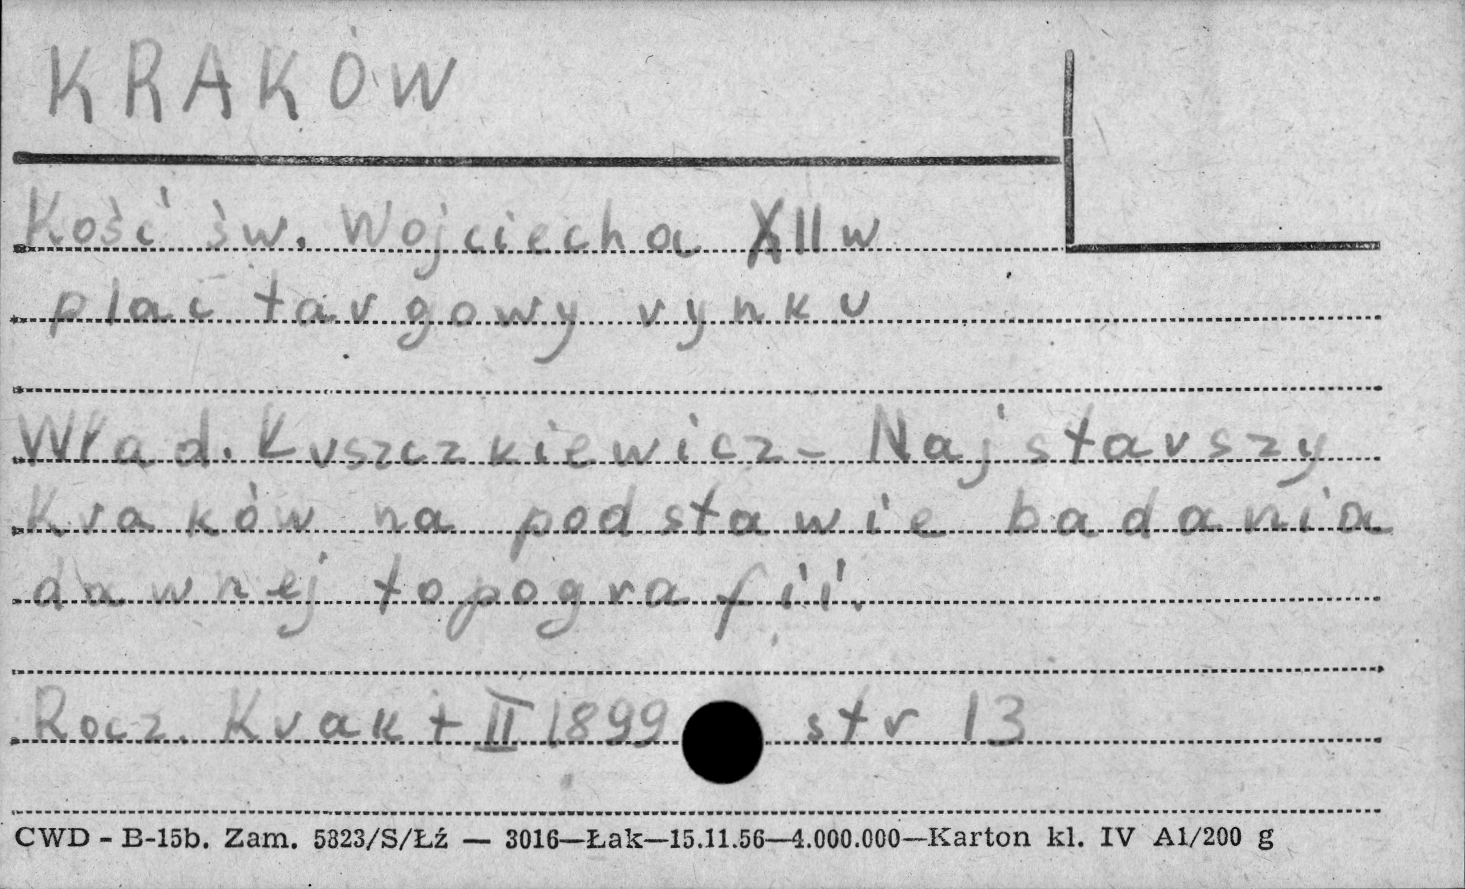 KRAKÓW
Kość św. Wojciecha XII w
plac targowy rynku
Wład. Łuszczkiewicz - Najstarszy
Kraków na podstawie badania
dawnej topografii.
Rocz. Krak t II 1899 str 13
CWD - B-15b. Zam. 5823/S/Łź — 3016—Łak—15.11.56—4.000.000—Karton kl. IV A1/200 g